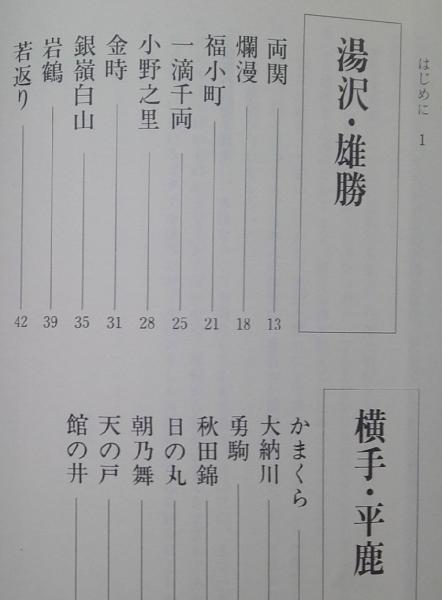 はじめに 1
湯沢・雄勝
両関 13
爛漫 18
福小町 21
一滴千両 25
小野之里 28
金時 31
銀嶺白山 35
岩鶴 39
若返り 42
横手・平鹿
かまくら
大納川
勇駒
秋田錦
日の丸
朝乃舞
天の戸
館の井